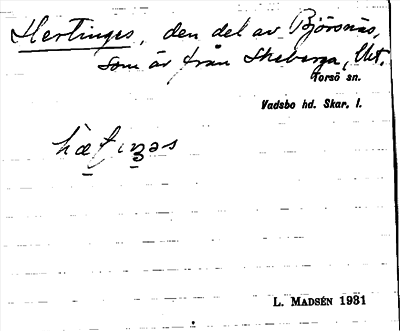 Hertinges, den del av Björsnäs,
som är från Skeberga, Ut.
Torsö sn.
Vadsbo hd. Skar. l.
L. MADSÉN 1931